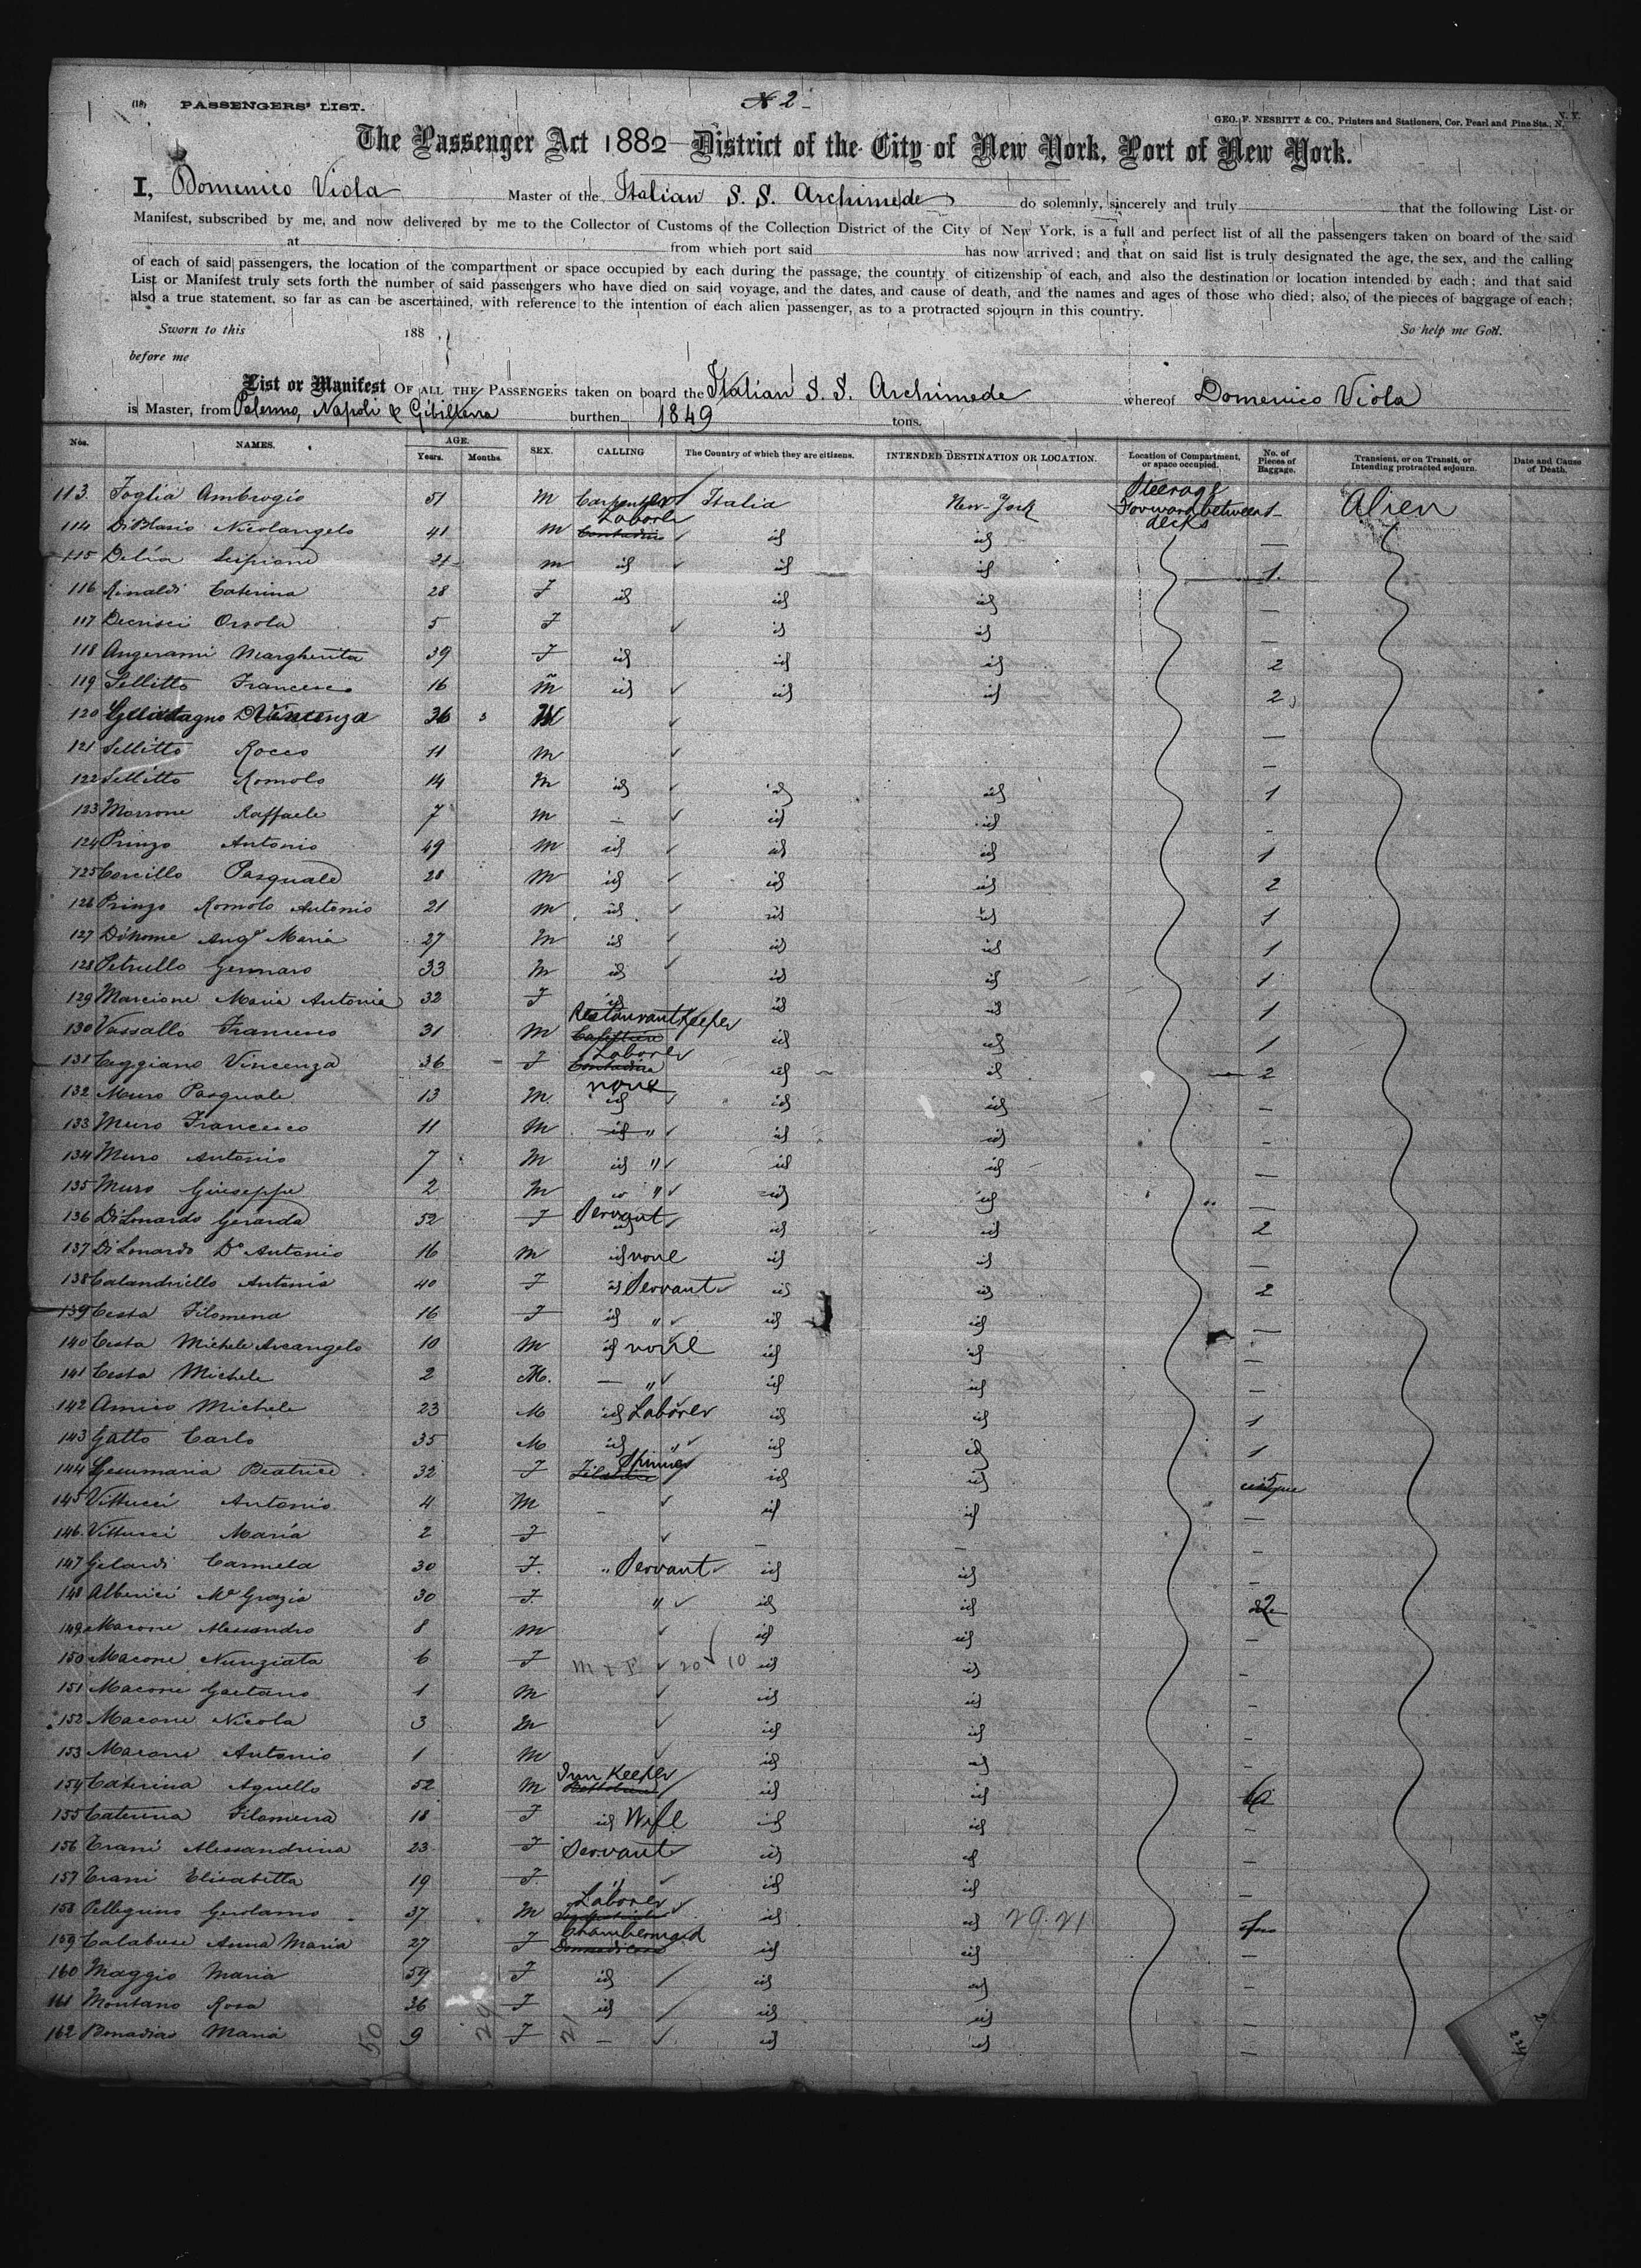 (18) PASSENGERS' LIST. N 2-
GEO. F. NESBITT & CO., Printers and Stationers, Cor. Pearl and Pine Sts., N. Y.
The Passenger Act 1882 District of the City of New York, Port of New York.
I, Domenico Viola Master of the Italian S. S. Archimede do solemnly, sincerely and truly that the following List or
Manifest, subscribed by me, and now delivered by me to the Collector of Customs of the Collection District of the City of New York, is a full and perfect list of all the passengers taken on board of the said
at from which port said has now arrived; and that on said list is truly designated the age, the sex, and the calling
of each of said passengers, the location of the compartment or space occupied by each during the passage, the country of citizenship of each, and also the destination or location intended by each; and that said
List or Manifest truly sets forth the number of said passengers who have died on said voyage, and the dates, and cause of death, and the names and ages of those who died; also, of the pieces of baggage of each;
also a true statement, so far as can be ascertained, with reference to the intention of each alien passenger, as to a protracted sojourn in this country.
Sworn to this 188 So help me God.
before me
List or Manifest OF ALL THE PASSENGERS taken on board the Italian S. S. Archimede whereof Domenico Viola
is Master, from Palermo, Napoli & burthen 1849 tons.
Nos. NAMES. AGE. Years. Months. SEX. CALLING The Country of which they are citizens. INTENDED DESTINATION OR LOCATION. Location of Compartment, or space occupied. No. of Pieces of Baggage. Transient, or on Transit, or Intending protracted sojourn. Date and Cause of Death.
113. Foglia Ambrogio 51 M Carpenter Italia New-York Steerage Forward between decks 1 Alien
114 DiBlasio Nicolangelo 41 M Laborer Contadino id id —
115 Delia Scipione 21 M id id id 1
116 Rinaldi Caterina 28 F id id id —
117 Decrisci Orsola 5 F id id —
118 Angerami Margherita 39 F id id id 2
119 Sellitto Francesco 16 M id id id 2
120 Vincenza 36 —
121 Sellitto Rocco 11 M —
122 Sellitto Romolo 14 M id id id 1
123 Marrone Raffaele 7 M — id id -
124 Prinzo Antonio 49 M id id id 1
125 Corcillo Pasquale 28 M id id id 2
126 Prinzo Romolo Antonio 21 M id id id 1
127 Dihome Ang° Maria 27 M id id id 1
128 Petrullo Gennaro 33 M id id id 1
129 Marcione Maria Antonia 32 F id id id 1
130 Vassallo Francesco 31 M Restaurant Keeper id id 1
131 Caggiano Vincenza 36 F Laborer Contadina id id 2
132 Muro Pasquale 13 M. none id id id —
133 Muro Francesco 11 M id " id id -
134 Muro Antonio 7 M id " id id —
135 Muro Giuseppe 2 M " id id —
136 DiLonardo Gerarda 52 F Servant id id id 2
137 DiLonardo D° Antonio 16 M id none id id —
138 Calandriello Antonia 40 F id Servant id id 2
139 Cesta Filomena 16 F id " id id —
140 Cesta Michele Arcangelo 10 M id none id id —
141 Cesta Michele 2 M. — " id id —
142 Amico Michele 23 M id Laborer id id 1
143 Gatto Carlo 35 M id " id id 1
144 Gesumaria Beatrice 32 F Spinner id id 5
145 Vittucci Antonio 4 M - id id —
146 Vittucci Maria 2 F — — -
147 Gelardi Carmela 30 F. " Servant id id -
148 Alberici Ma Grazia 30 F " id id 2
149 Macone Alessandro 8 M id id —
150 Macone Nunziata 6 F M + F 20 10 id id -
151 Macone Gaetano 1 M id id -
152 Macone Nicola 3 M id id -
153 Macone Antonio 1 M id id -
154 Caterina Agnello 52 M Inn Keeper id id 6
155 Caterina Filomena 18 F id Wife id id -
156 Trani Alessandrina 23 F Servant id id —
157 Trani Elisabetta 19 F " id id —
158 Pellegrino Gerolamo 37 M Laborer id id 29.21
159 Calabrese Anna Maria 27 F Chambermaid Donna di Casa id id —
160 Maggio Maria 59 F id id id -
161 Montano Rosa 36 F id id id -
162 Bonadiao Maria 9 F — id id —
50 29 21